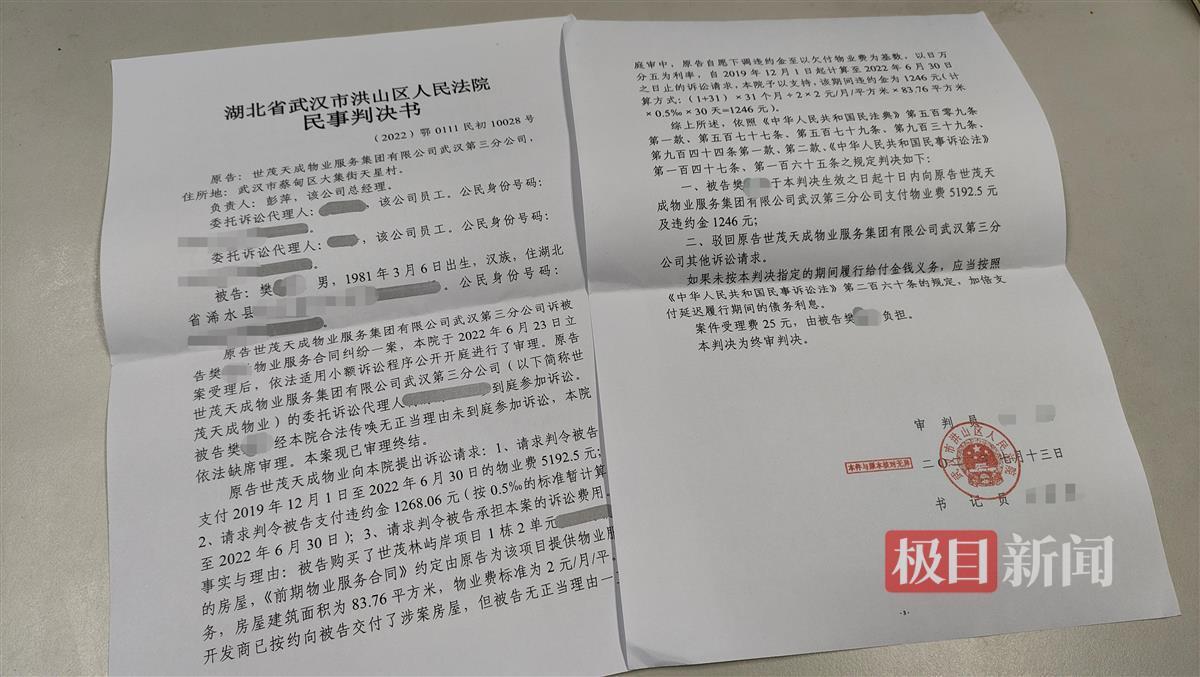 湖北省武汉市洪山区人民法院
民事判决书
（2022）鄂0111民初10028号
原告：世茂天成物业服务集团有限公司武汉第三分公司，
住所地：武汉市蔡甸区大集街天星村。
负责人：彭萍，该公司总经理。
委托诉讼代理人：，该公司员工。公民身份号码：
。
委托诉讼代理人：，该公司员工。公民身份号码：
。
被告：樊 男，1981年3月6日出生，汉族，住湖北
省浠水县 。公民身份号码：
。
原告世茂天成物业服务集团有限公司武汉第三分公司诉被
告樊 物业服务合同纠纷一案，本院于2022年6月23日立
案受理后，依法适用小额诉讼程序公开开庭进行了审理。原告
世茂天成物业服务集团有限公司武汉第三分公司（以下简称世
茂天成物业）的委托诉讼代理人 到庭参加诉讼。
被告樊 经本院合法传唤无正当理由未到庭参加诉讼，本院
依法缺席审理。本案现已审理终结。
原告世茂天成物业向本院提出诉讼请求：1、请求判令被告
支付2019年12月1日至2022年6月30日的物业费5192.5元；
2、请求判令被告支付违约金1268.06元（按0.5‰的标准暂计算
至2022年6月30日）；3、请求判令被告承担本案的诉讼费用。
事实与理由：被告购买了世茂林屿岸项目1栋2单元
的房屋，《前期物业服务合同》约定由原告为该项目提供物业服
务，房屋建筑面积为83.76平方米，物业费标准为2元/月/平
开发商已按约向被告交付了涉案房屋，但被告无正当理由一
庭审中，原告自愿下调违约金至以欠付物业费为基数，以日万
分五为利率，自2019年12月1日起计算至2022年6月30日
之日止的诉讼请求，本院予以支持，该期间违约金为1246元（计
算方式：（1+31）×31个月÷2×2元/月/平方米×83.76平方米
×0.5‰×30天=1246元）。
综上所述，依照《中华人民共和国民法典》第五百零九条
第一款、第五百七十七条、第五百七十九条、第九百三十九条、
第九百四十四条第一款、第二款，《中华人民共和国民事诉讼法》
第一百四十七条、第一百六十五条之规定判决如下：
一、被告樊 于本判决生效之日起十日内向原告世茂天
成物业服务集团有限公司武汉第三分公司支付物业费5192.5元
及违约金1246元；
二、驳回原告世茂天成物业服务集团有限公司武汉第三分
公司其他诉讼请求。
如果未按本判决指定的期间履行给付金钱义务，应当按照
《中华人民共和国民事诉讼法》第二百六十条的规定，加倍支
付延迟履行期间的债务利息。
案件受理费25元，由被告樊 负担。
本判决为终审判决。
审判员
本件与原本核对无异
二〇 七月十三日
书记员
极目新闻
-3-